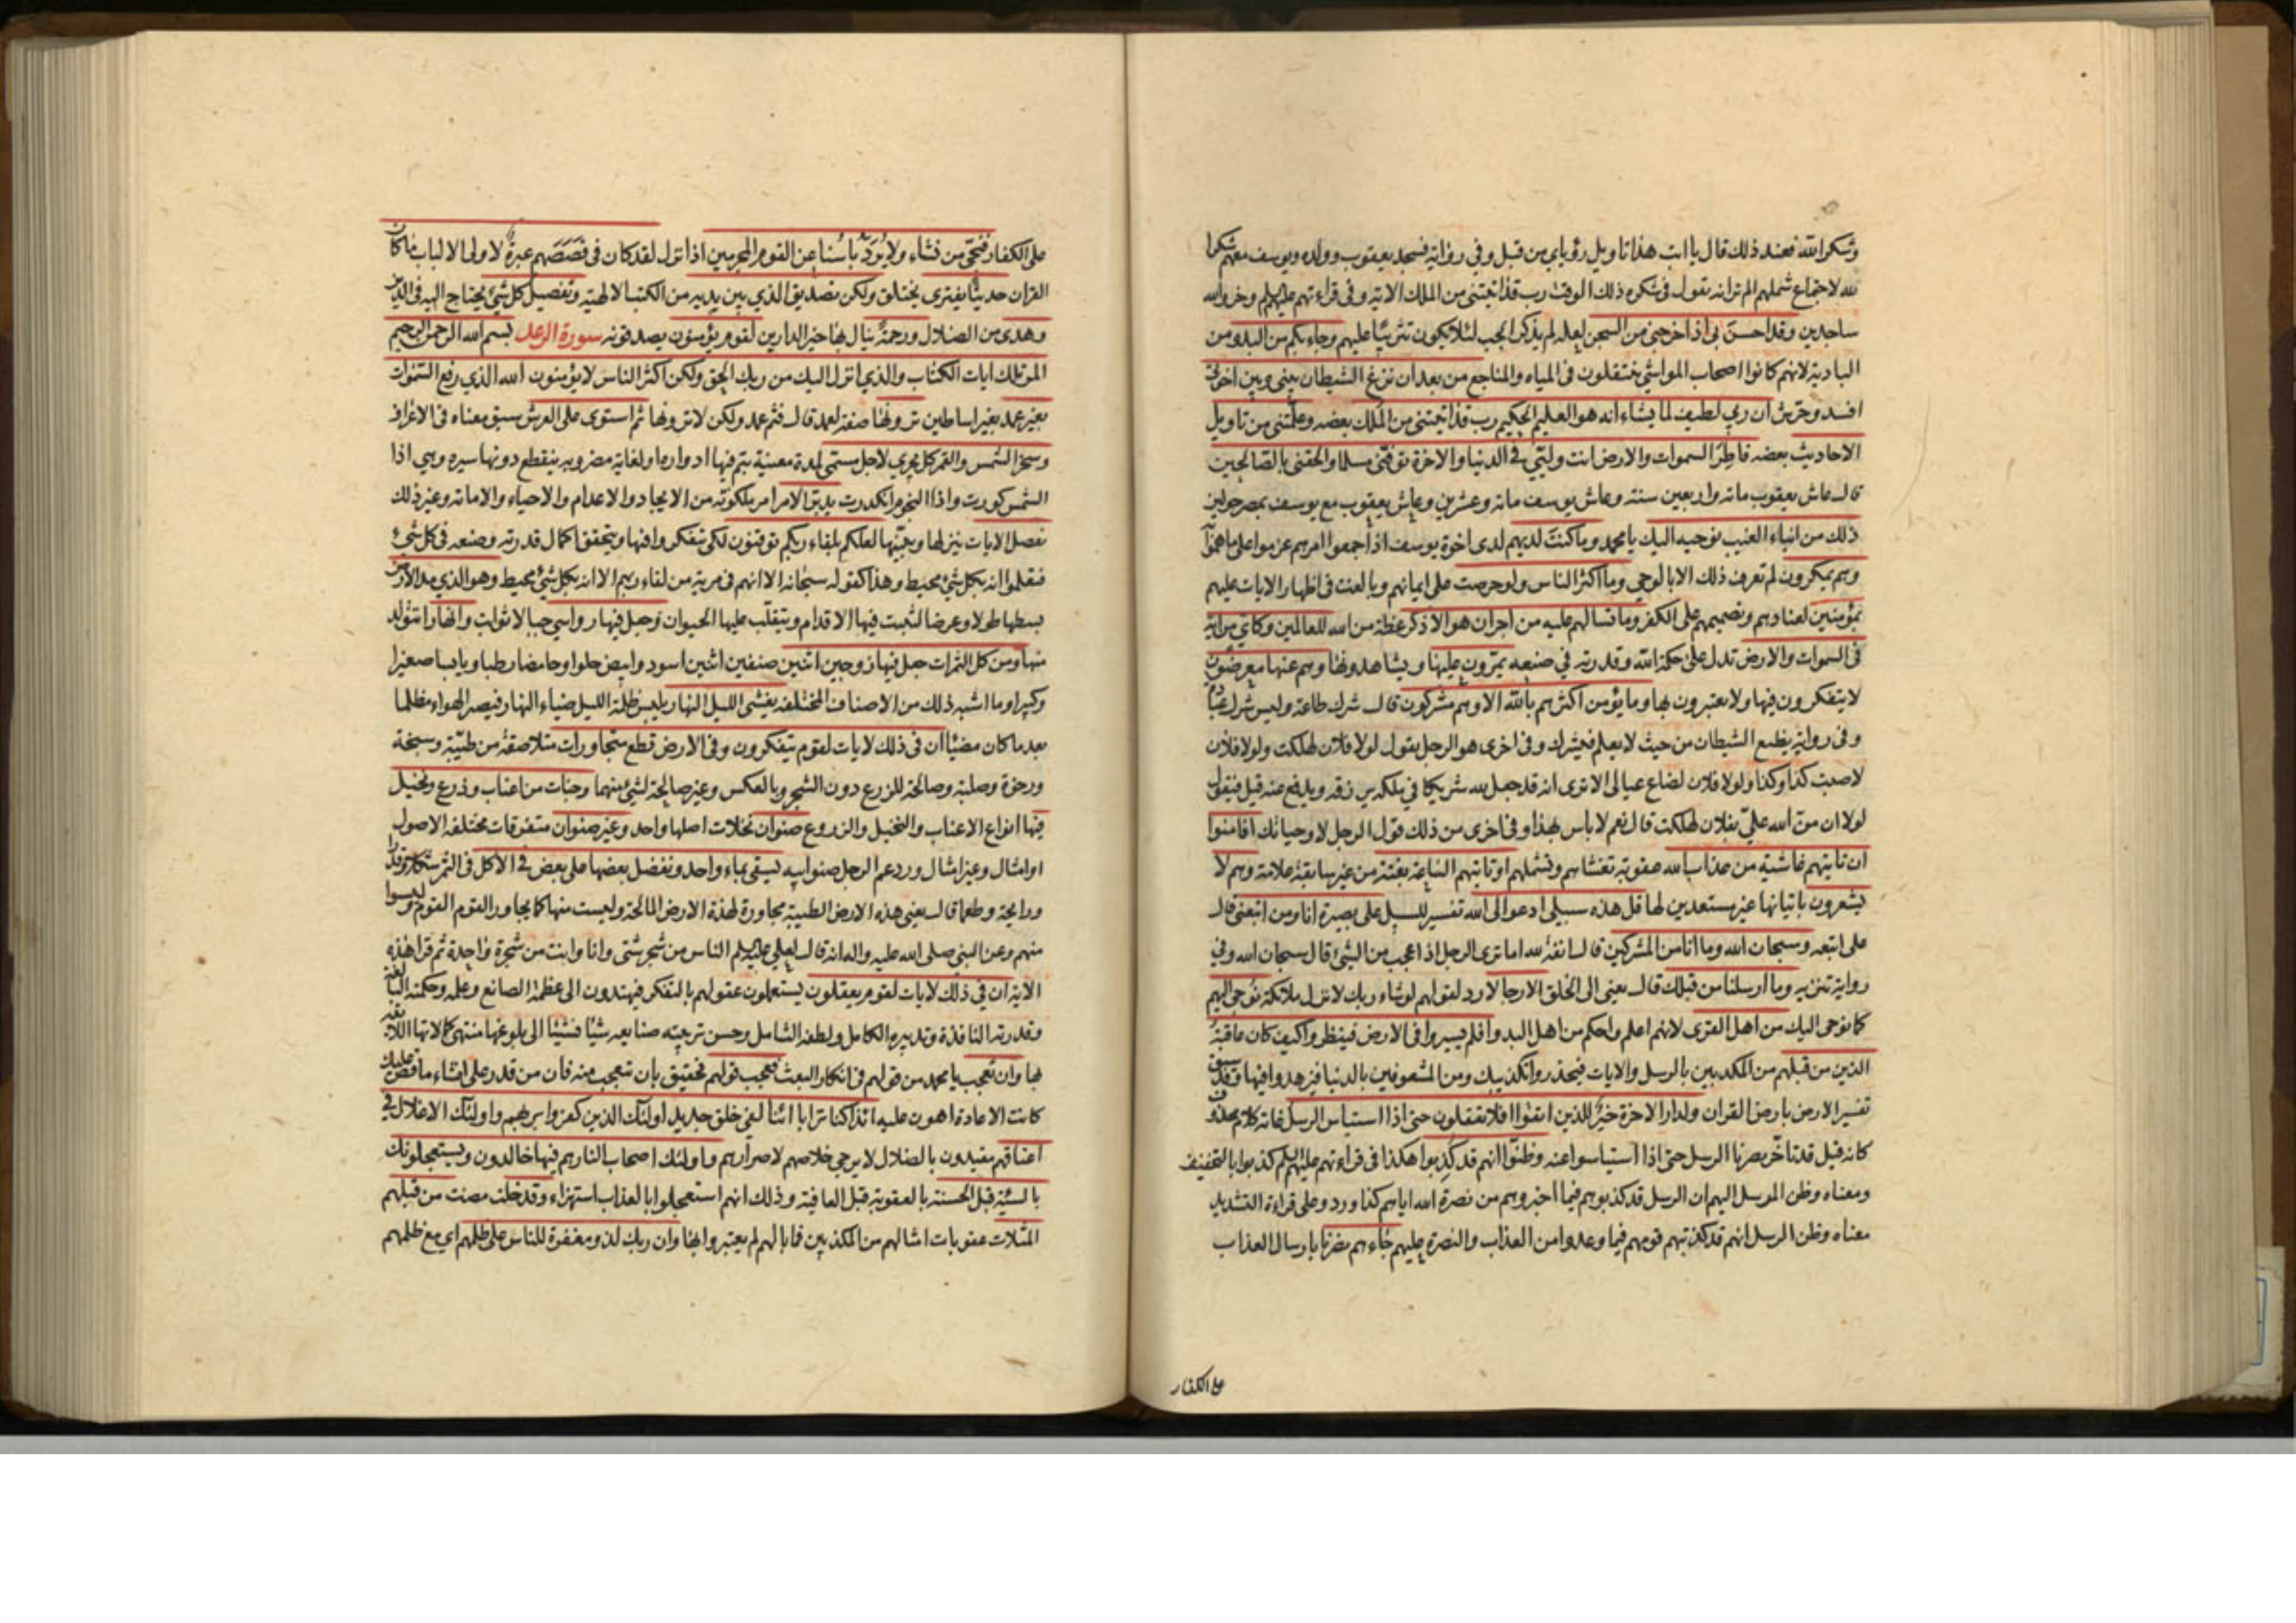 وشكرا لله فعند ذلك قال يا ابت هذا تاويل رؤياي من قبل وفي رواية فسجد يعقوب وولده ويوسف معهم شكرا
لله لاجتماع شملهم الم تر انه يقول في شكره ذلك الوقت رب قد اتيتني من الملك الاية وفي قراءتهم عليهم السلم وخروا لله
ساجدين وقد احسن بي اذ اخرجني من السجن لعله لم يذكر الجب لئلا يكون تثريبا عليهم وجاء بكم من البدو من
البادية لانهم كانوا اصحاب المواشي ينتقلون في المياه والمناجع من بعد ان نزغ الشيطان بيني وبين اخوتي
افسد وحرش ان ربي لطيف لما يشاء انه هو العليم الحكيم رب قد اتيتني من الملك بعضه وعلمتني من تاويل
الاحاديث بعضه فاطر السموات والارض انت وليي في الدنيا والاخرة توفني مسلما والحقني بالصالحين
قال عاش يعقوب مائة واربعين سنة وعاش يوسف مائة وعشرين وعاش يعقوب مع يوسف بمصر حولين
ذلك من انباء الغيب نوحيه اليك يا محمد وما كنت لديهم لدى اخوة يوسف اذ اجمعوا امرهم عزموا على ما هموا
وهم يمكرون لم تعرف ذلك الا بالوحي وما اكثر الناس ولو حرصت على ايمانهم وبالغت في اظهار الايات عليهم
بمؤمنين لعنادهم وتصميمهم على الكفر وما تسالهم عليه من اجر ان هو الا ذكر عظة من الله للعالمين وكاين من اية
في السموات والارض تدل على حكمة الله وقدرته في صنعه يمرون عليها ويشاهدونها وهم عنها معرضون
لا يتفكرون فيها ولا يعتبرون بها وما يؤمن اكثرهم بالله الا وهم مشركون قال شرك طاعة وليس شرك عبادة
وفي رواية يطيع الشيطان من حيث لا يعلم فيشرك وفي اخرى هو الرجل يقول لولا فلان لهلكت ولولا فلان
لاصبت كذا وكذا ولولا فلان لضاع عيالي الا ترى انه قد جعل لله شريكا في ملكه يرزقه ويدفع عنه قيل فيقول
لولا ان من الله علي بفلان لهلكت قال نعم لا باس بهذا وفي اخرى من ذلك قول الرجل لا وحياتك افامنوا
ان تاتيهم غاشية من عذاب الله عقوبة تغشاهم وتشملهم او تاتيهم الساعة بغتة من غير سابقة علامة وهم لا
يشعرون باتيانها غير مستعدين لها قل هذه سبيلي ادعوا الى الله تفسير للسبيل على بصيرة انا ومن اتبعني قال
علي اتبعه وسبحان الله وما انا من المشركين قال انفة لله اما ترى الرجل اذا عجب من الشيء قال سبحان الله وفي
رواية تنزيه وما ارسلنا من قبلك قال يعني الى الخلق الا رجالا رد لقولهم لو شاء ربك لانزل ملائكة نوحي اليهم
كما نوحي اليك من اهل القرى لانهم اعلم واحكم من اهل البدو افلم يسيروا في الارض فينظروا كيف كان عاقبة
الذين من قبلهم من المكذبين بالرسل والايات فيحذروا تكذيبك ومن المشعوفين بالدنيا فيزهدوا فيها وقد سبق
تفسير الارض بارض القران ولدار الاخرة خير للذين اتقوا افلا تعقلون حتى اذا استياس الرسل غاية كلام محذوف
كانه قيل قد تاخر نصرنا الرسل حتى اذا استياسوا عنه وظنوا انهم قد كذبوا هكذا في قراءتهم عليهم السلم كذبوا بالتخفيف
ومعناه وظن المرسل اليهم ان الرسل قد كذبوهم فيما اخبروهم من نصرة الله اياهم كذا ورد وعلى قراءة التشديد
معناه وظن الرسل انهم قد كذبتهم قومهم فيما وعدوا من العذاب والنصرة عليهم جاءهم نصرنا بارسال العذاب
على الكفار
على الكفار فنجي من نشاء ولا يرد باسنا عن القوم المجرمين اذا نزل لقد كان في قصصهم عبرة لاولي الالباب ما كان
القران حديثا يفترى يختلق ولكن تصديق الذي بين يديه من الكتب الالهية وتفصيل كل شيء يحتاج اليه في الدين
وهدى من الضلال ورحمة ينال بها خير الدارين لقوم يؤمنون يصدقونه سورة الرعد بسم الله الرحمن الرحيم
المر تلك ايات الكتاب والذي انزل اليك من ربك الحق ولكن اكثر الناس لا يؤمنون الله الذي رفع السموات
بغير عمد بغير اساطين ترونها صفة لعمد قال فثم عمد ولكن لا ترونها ثم استوى على العرش سبق معناه في الاعراف
وسخر الشمس والقمر كل يجري لاجل مسمى لمدة معينة يتم فيها ادواره او لغاية مضروبة ينقطع دونها سيره وهي اذا
الشمس كورت واذا النجوم انكدرت يدبر الامر امر ملكوته من الايجاد والاعدام والاحياء والاماتة وغير ذلك
يفصل الايات ينزلها ويبينها لعلكم بلقاء ربكم توقنون لكي تتفكروا فيها ويتحقق كمال قدرته وصنعه في كل شيء
فتعلموا انه بكل شيء محيط وهذا كقوله سبحانه الا انهم في مرية من لقاء ربهم الا انه بكل شيء محيط وهو الذي مد الارض
بسطها طولا وعرضا لتثبت فيها الاقدام ويتقلب عليها الحيوان وجعل فيها رواسي جبالا ثوابت وانهارا تتولد
منها ومن كل الثمرات جعل فيها زوجين اثنين صنفين اثنين اسود وابيض حلوا وحامضا رطبا ويابسا صغيرا
وكبيرا وما اشبه ذلك من الاصناف المختلفة يغشي الليل النهار يلبس ظلمة الليل ضياء النهار فيصير الهواء مظلما
بعد ما كان مضيئا ان في ذلك لايات لقوم يتفكرون وفي الارض قطع متجاورات متلاصقة من طيبة وسبخة
ورخوة وصلبة وصالحة للزرع دون الشجر وبالعكس وغير صالحة لشيء منهما وجنات من اعناب وزرع ونخيل
فيها انواع الاعناب والنخيل والزروع صنوان نخلات اصلها واحد وغير صنوان متفرقات مختلفة الاصول
او امثال وغير امثال وورد عم الرجل صنو ابيه يسقى بماء واحد ونفضل بعضها على بعض في الاكل في الثمر شكلا وقدرا
ورايحة وطعما قال يعني هذه الارض الطيبة مجاورة لهذه الارض المالحة وليست منها كما يجاور القوم القوم وليسوا
منهم وعن النبي صلى الله عليه واله انه قال لعلي عليه السلم الناس من شجر شتى وانا وانت من شجرة واحدة ثم قرا هذه
الاية ان في ذلك لايات لقوم يعقلون يستعملون عقولهم بالتفكر فيهتدون الى عظمة الصانع وعلمه وحكمته البالغة
وقدرته النافذة وتدبيره الكامل ولطفه الشامل وحسن تربيته صنايعه شيئا فشيئا الى بلوغها منتهى كمالاتها اللائقة
بها وان تعجب يا محمد من قولهم في انكار البعث فعجب قولهم حقيق بان تتعجب منه فان من قدر على انشاء ما قص عليك
كانت الاعادة اهون عليه ائذا كنا ترابا ائنا لفي خلق جديد اولئك الذين كفروا بربهم واولئك الاغلال في
اعناقهم مقيدون بالضلال لا يرجى خلاصهم لاصرارهم واولئك اصحاب النار هم فيها خالدون ويستعجلونك
بالسيئة قبل الحسنة بالعقوبة قبل العافية وذلك انهم استعجلوا بالعذاب استهزاء وقد خلت مضت من قبلهم
المثلات عقوبات امثالهم من المكذبين فما بالهم لم يعتبروا بها وان ربك لذو مغفرة للناس على ظلمهم اي مع ظلمهم